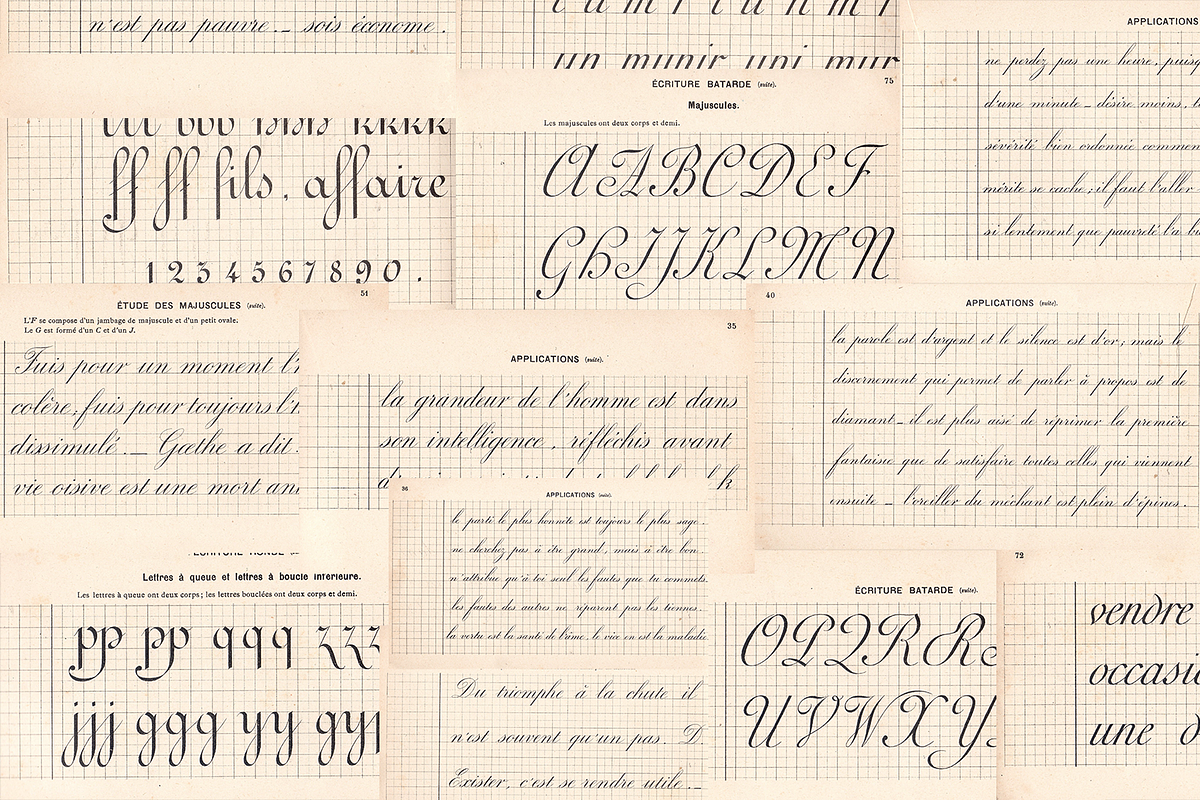 n'est pas pauvre. _ sois économe.
un munir uni mur
ÉCRITURE BATARDE (suite).
75
Majuscules.
Les majuscules ont deux corps et demi.
A A B C D E F
G H I J K L M N
APPLICATIONS
ne perdez pas une heure, puisq
d'une minute _ désire moins, t
sévérité bien ordonnée commen
mérite se cache; il faut l'aller
si lentement que pauvreté l'a
kkkk
ff ff fils, affaire
1 2 3 4 5 6 7 8 9 0 .
51
ÉTUDE DES MAJUSCULES (suite).
L'F se compose d'un jambage de majuscule et d'un petit ovale.
Le G est formé d'un C et d'un J.
Fuis pour un moment l'
colère; fuis pour toujours l'
dissimulé. _ Gœthe a dit
vie oisive est une mort an
35
APPLICATIONS (suite).
la grandeur de l'homme est dans
son intelligence, réfléchis avant
40
APPLICATIONS (suite).
la parole est d'argent et le silence est d'or; mais le
discernement qui permet de parler à propos est de
diamant _ il est plus aisé de réprimer la première
fantaisie que de satisfaire toutes celles qui viennent
ensuite _ l'oreiller du méchant est plein d'épines.
36
APPLICATIONS (suite).
le parti le plus honnête est toujours le plus sage.
ne cherchez pas à être grand, mais à être bon.
n'attribue qu'à toi seul les fautes que tu commets.
les fautes des autres ne réparent pas les tiennes.
la vertu est la santé de l'âme, le vice en est la maladie
ÉCRITURE RONDE
Lettres à queue et lettres à boucle inférieure.
Les lettres à queue ont deux corps; les lettres bouclées ont deux corps et demi.
pp pp qqq zzz
jjj ggg yy gy
Du triomphe à la chute il
n'est souvent qu'un pas. D
Exister, c'est se rendre utile. _
ÉCRITURE BATARDE (suite).
O P Q R R
U V W X Y
72
vendre
occasi
une d